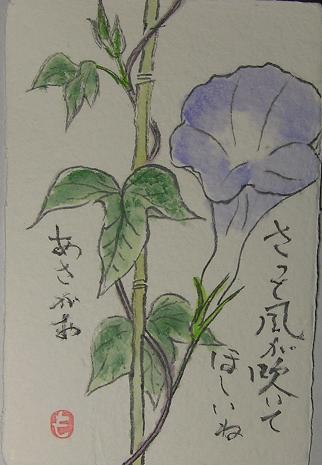 さっと風が吹いて
ほしいね
あさがお